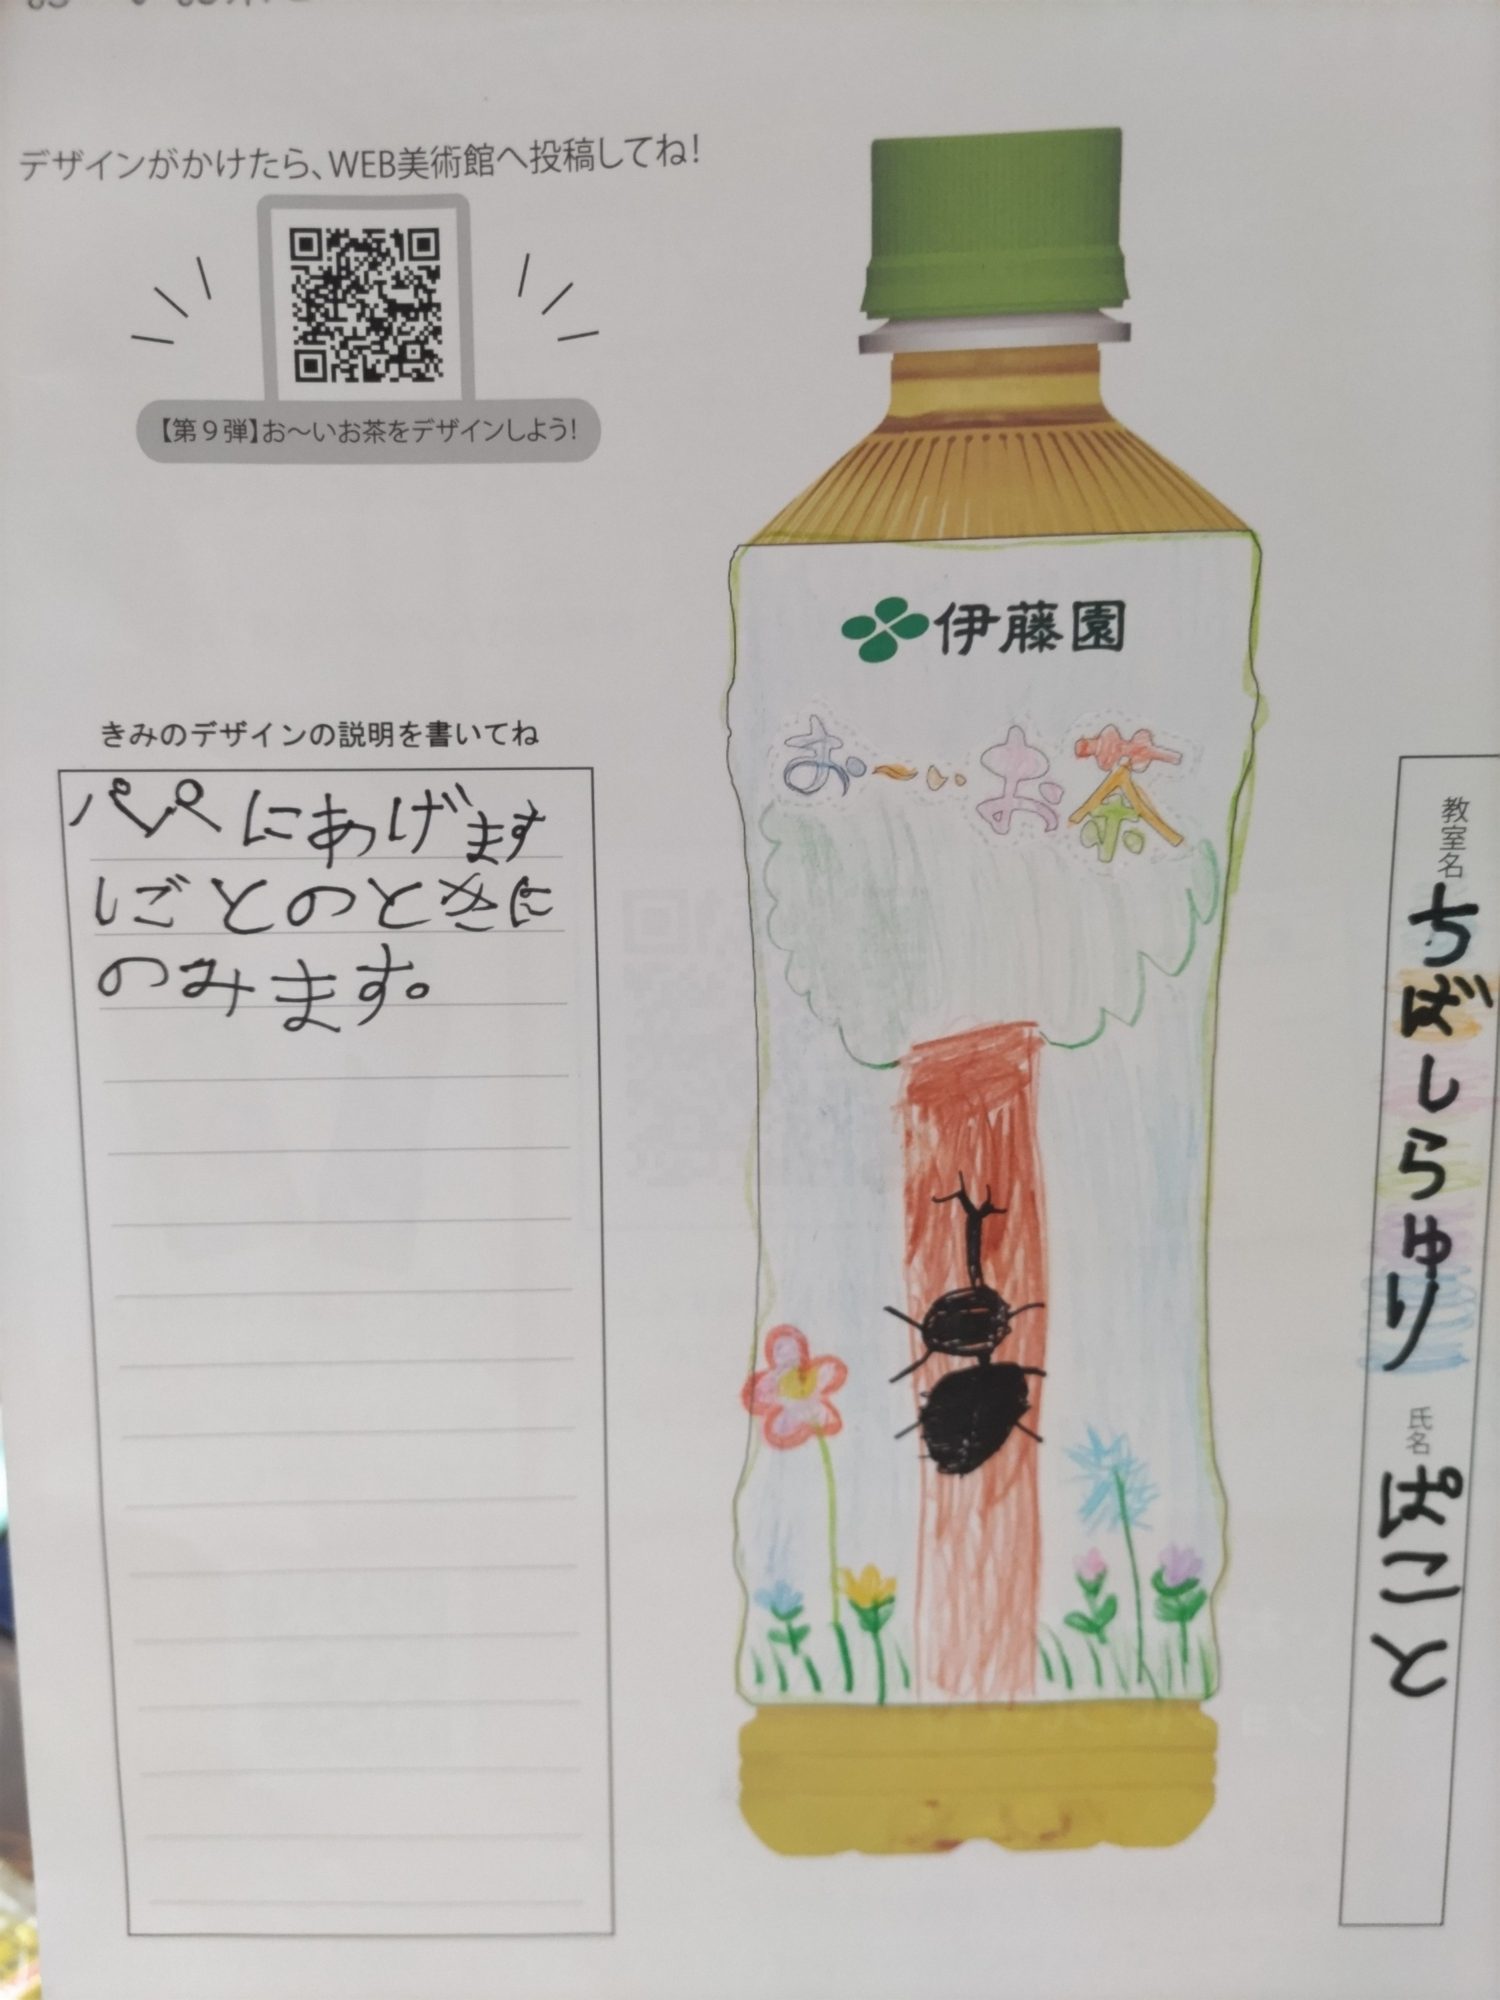 デザインがかけたら、WEB美術館へ投稿してね!
【第9弾】お～いお茶をデザインしよう!
伊藤園
お～いお茶
きみのデザインの説明を書いてね
パパにあげます
しごとのときに
のみます。
教室名
ちばしらゆり
氏名
ぱこと